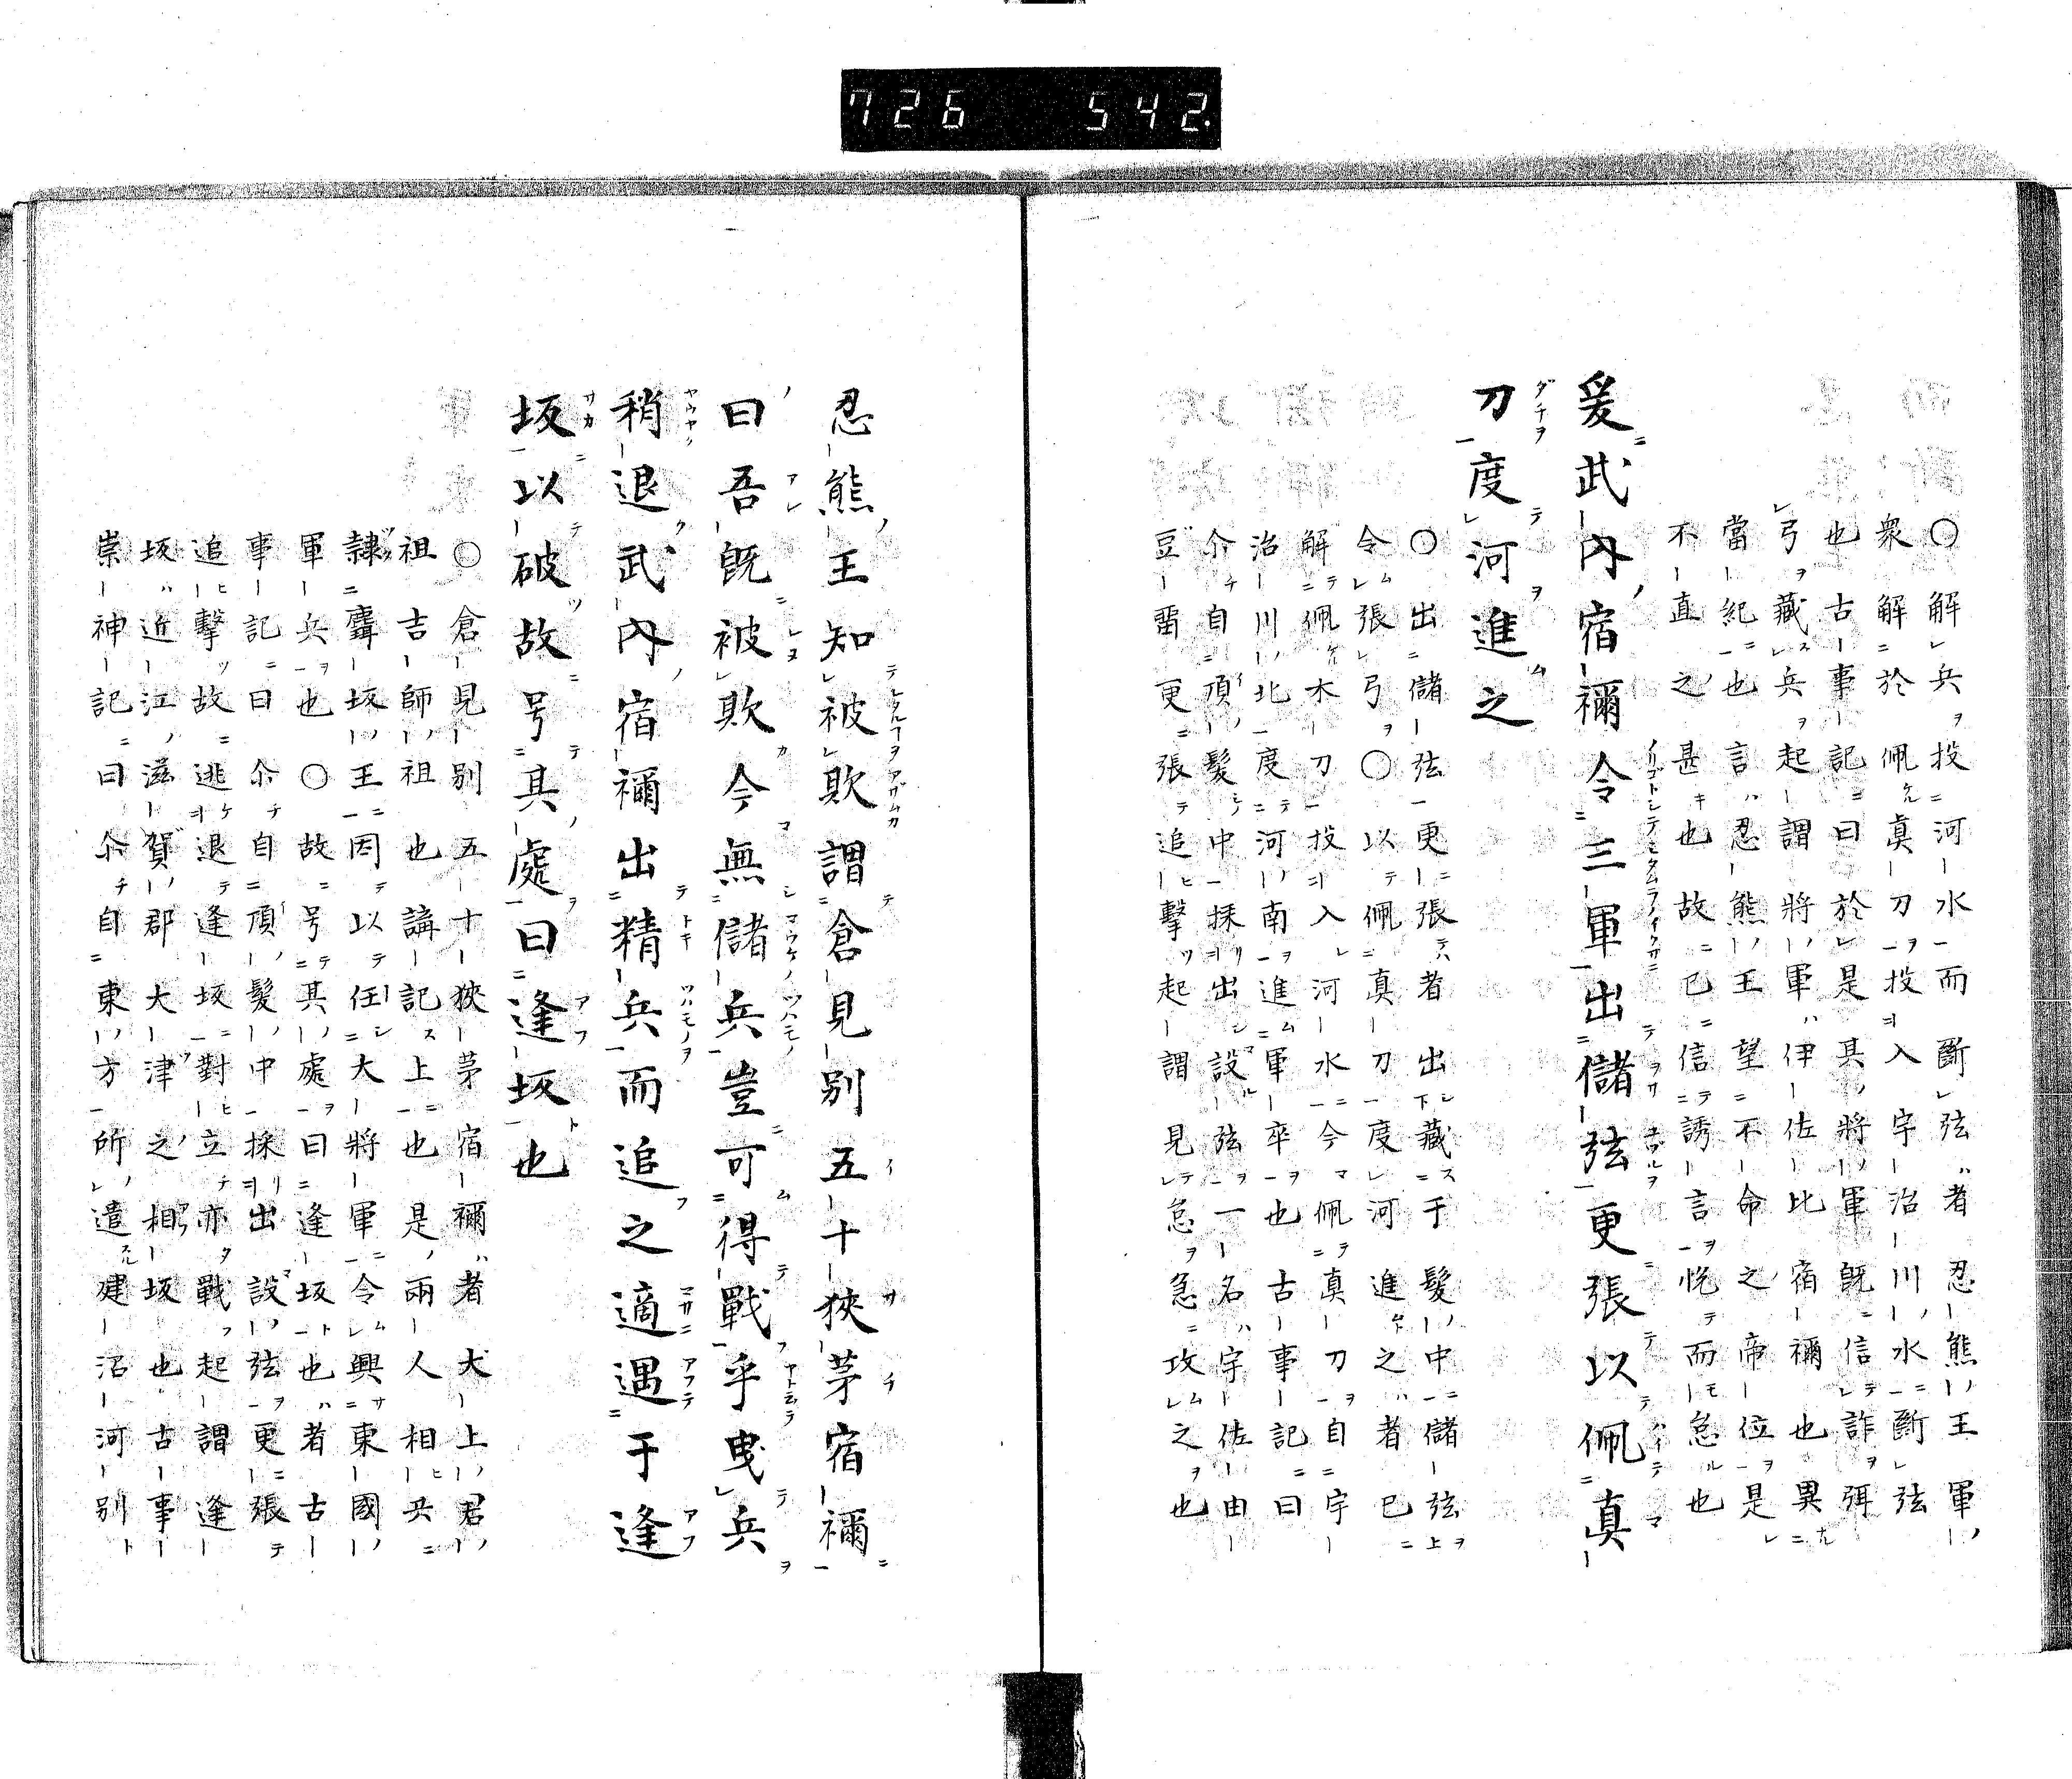 726 542.
○解兵投河水而斷弦者忍熊王軍
衆解於佩眞刀投入宇治川水斷弦
也古事記曰於是其將軍既信詐弭
弓藏兵起謂將軍伊佐比宿禰也異
當紀也言忍熊王望不命之帝位是
不直之甚也故已信誘言恍而怠也
爰武内宿禰令三軍出儲弦更張以佩眞
刀度河進之
○出儲弦更張者出藏于髮中儲弦
令張弓○以佩眞刀度河進之者已
解佩木刀投入河水今佩眞刀自宇
治川北度河南進軍卒也古事記曰
尒自頂髮中採出設弦一名宇佐由
豆留更張追擊起謂見怠急攻之也
忍熊王知被欺謂倉見別五十狹茅宿禰
曰吾既被欺今無儲兵豈可得戰乎曳兵
稍退武内宿禰出精兵而追之適遇于逢
坂以破故号其處曰逢坂也
○倉見別五十狹茅宿禰者犬上君
祖吉師祖也講記上也是兩人相共
隷麛坂王因以任大將軍令興東國
軍兵也○故号其處曰逢坂也者古
事記曰尒自頂髮中採出設弦更張
追擊故逃退逢坂對立亦戰起謂逢
坂近江滋賀郡大津之相坂也古事
崇神記曰尒自東方所遣建沼河別